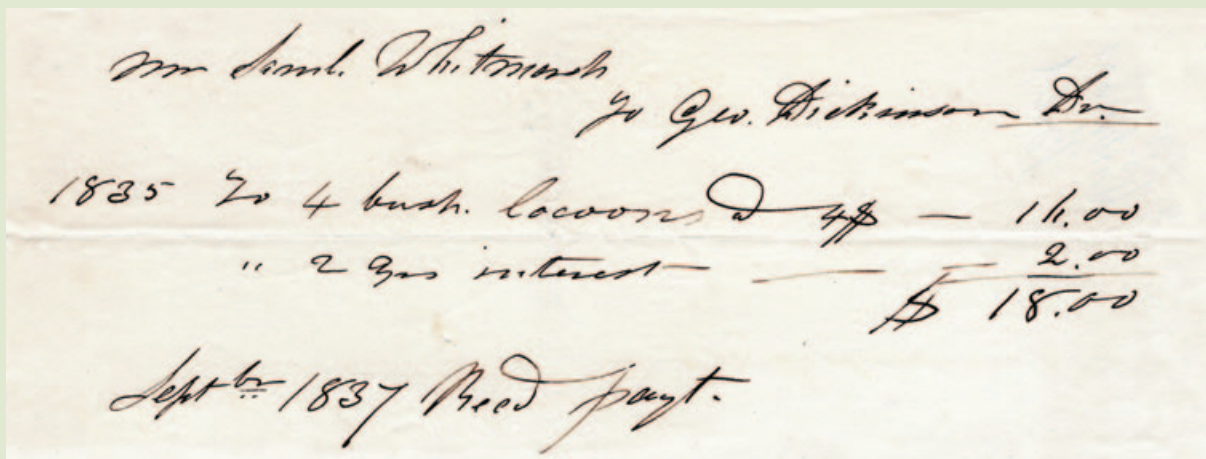 Mr Saml. Whitmarsh
To Geo. Dickinson Dr.
1835 To 4 bush. Cocoons @ 4$ — 16.00
" 2 yrs interest — — — 2.00
$ 18.00
Septbr 1837 Recd payt.